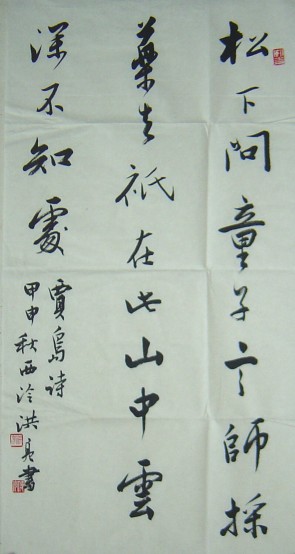 松下問童子言師採
藥去祇在此山中雲
深不知處
賈島詩
甲申秋西泠洪亮書